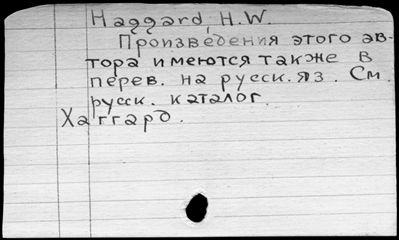 Haggard, H.W.
Произведения этого ав-
тора имеются также в
перев. на русск. яз. См.
русск. каталог.
Хаггард.